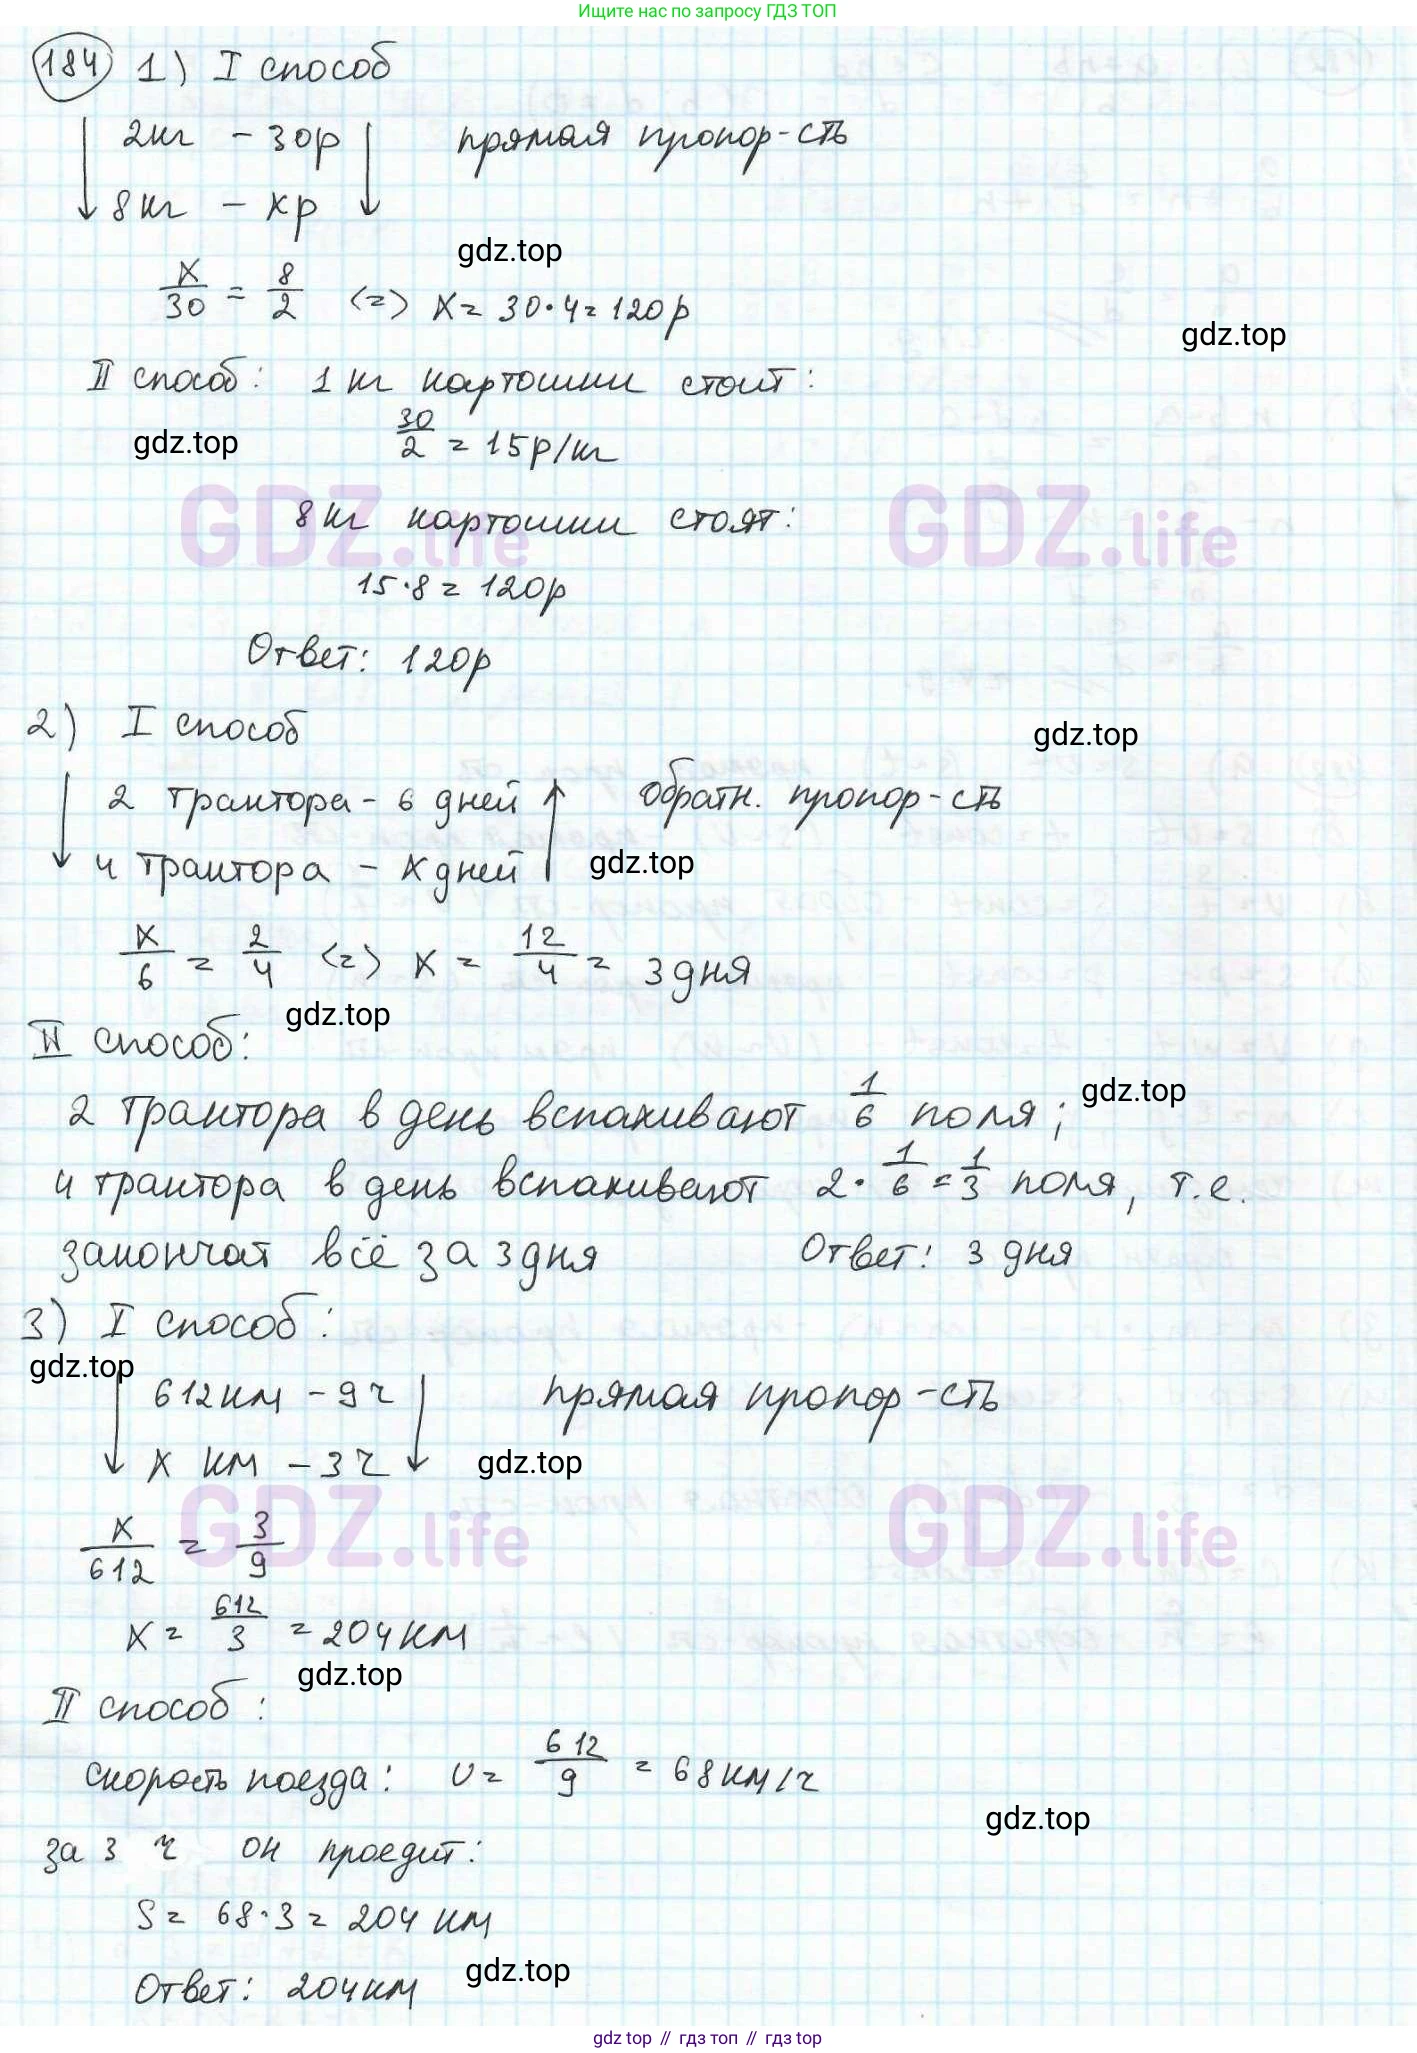 Ищите нас по запросу ГДЗ ТОП
184 1) I способ
2кг – 30р прямая пропор-сть
8кг – xр
gdz.top
x/30 = 8/2 <=> x = 30·4 = 120р
gdz.top
II способ: 1 кг картошки стоит:
30/2 = 15р/кг
gdz.top
GDZ.life GDZ.life
8 кг картошки стоят:
15·8 = 120р
Ответ: 120р
2) I способ
gdz.top
2 трактора – 6 дней обратн. пропор-сть
4 трактора – x дней gdz.top
x/6 = 2/4 <=> x = 12/4 = 3 дня
gdz.top
II способ:
2 трактора в день вспахивают 1/6 поля; gdz.top
4 трактора в день вспахивают 2·1/6 = 1/3 поля, т.е.
закончат всё за 3 дня Ответ: 3 дня
3) I способ:
gdz.top
612км – 9ч прямая пропор-сть
x км – 3ч gdz.top
GDZ.life GDZ.life
x/612 = 3/9
x = 612/3 = 204км
gdz.top
II способ:
скорость поезда: v = 612/9 = 68км/ч
gdz.top
за 3 ч он проедит:
S = 68·3 = 204 км
Ответ: 204км gdz.top
gdz top // гдз топ // gdz top